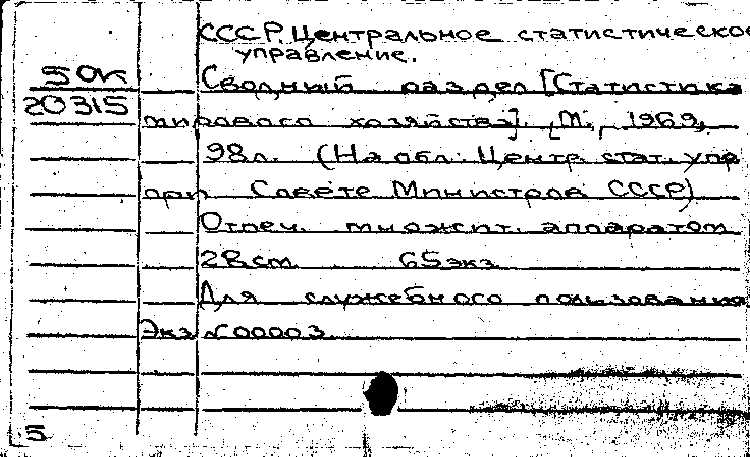 СССР. Центральное статистическое
управление.
50к Сводный раздел [Статистика
20315 мирового хозяйства]. М., 1969,
98л. (На обл: Центр. стат. упр
при Совете Министров СССР)
Отпеч. множит. аппаратом
28см 65экз
Для служебного пользования
Экз №00003
5